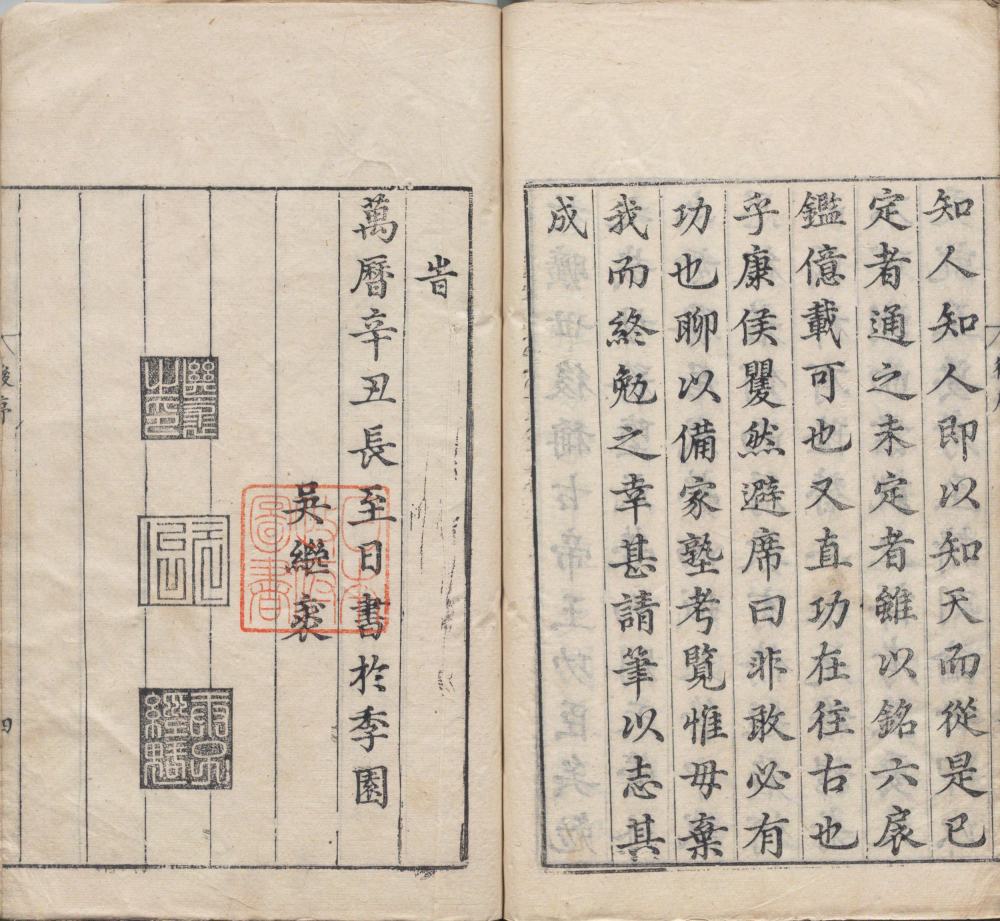 知人知人即以知天而從是已
定者通之未定者雖以銘六扆
鑑億載可也又直功在往古也
乎康侯矍然避席曰非敢必有
功也聊以備家塾考覧惟毋棄
我而終勉之幸甚請筆以志其
成
旹
萬曆辛丑長至日書於季園
吳繼
後序
四